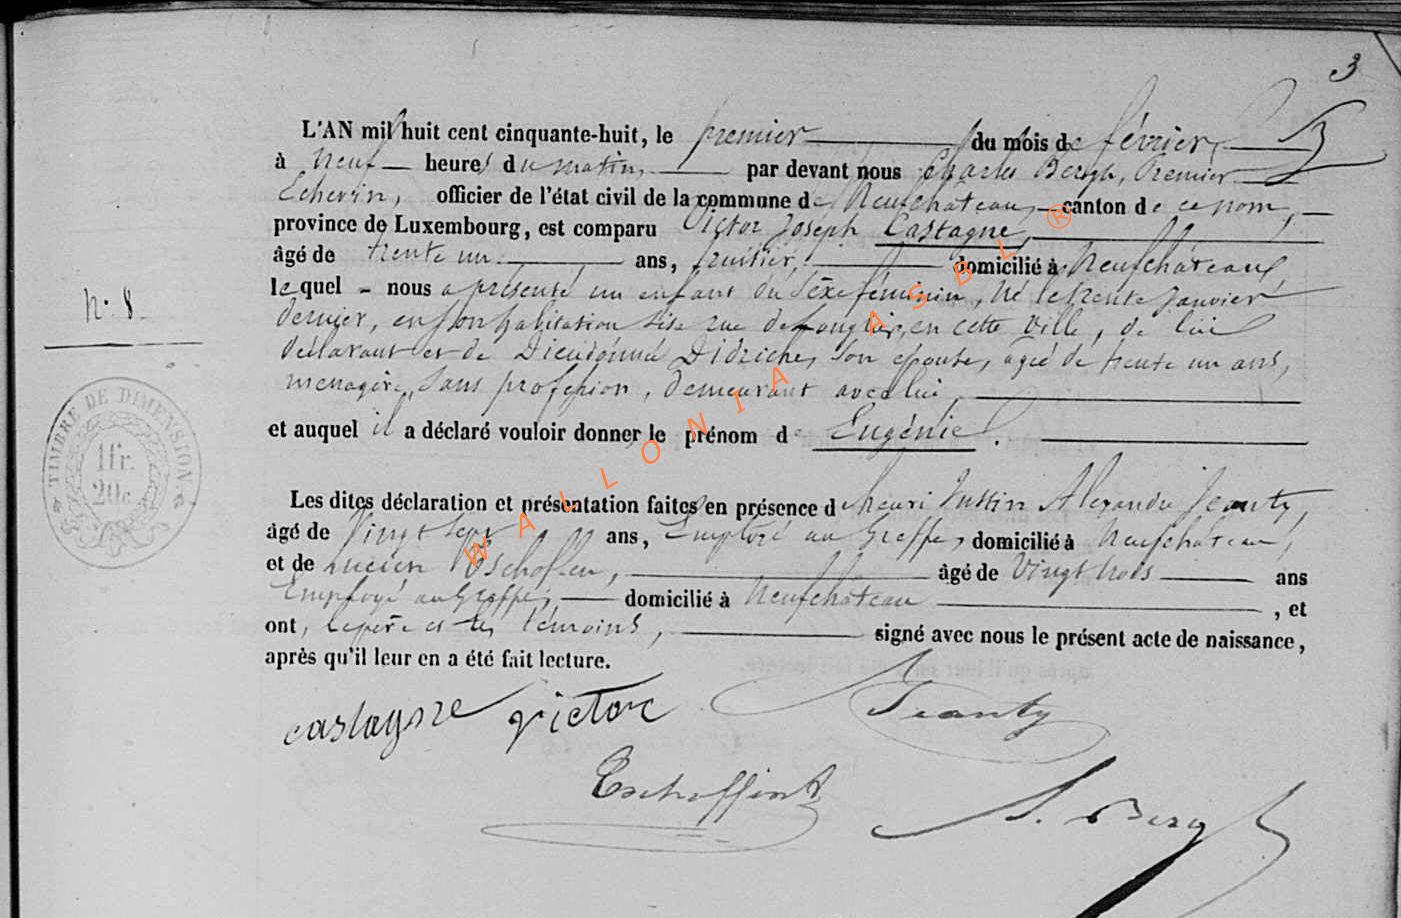 3
L'AN mil huit cent cinquante-huit, le premier du mois de février,
à neuf heures du matin, par devant nous Charles Bergh, Premier
Echevin, officier de l'état civil de la commune de Neufchâteau, canton de ce nom,
province de Luxembourg, est comparu Victor Joseph Castagne,
âgé de trente un ans, fruitier, domicilié à Neufchâteau
lequel - nous a présenté un enfant du Sexe féminin, né le trente Janvier
N° 8.
dernier, en son habitation sise rue de, en cette Ville, de lui
déclarant et de Dieudonné Didriche, son épouse, agée de trente un ans,
menagère, Sans profession, demeurant avec lui,
et auquel il a déclaré vouloir donner le prénom de Eugénie.
TIMBRE DE DIMENSION
1fr.
20c.
Les dites déclaration et présentation faites en présence d henri Justin Alexandre Jeanty,
âgé de Vingt Sept ans, Employé au Greffe, domicilié à Neufchateau,
et de Lucien Eschoffen, âgé de Vingt trois ans
Employé au Greffe, domicilié à Neufchateau , et
ont, le père et les témoins, signé avec nous le présent acte de naissance,
après qu'il leur en a été fait lecture.
castagne victor Jeanty
Bergh
WALLONIA ASBL ®